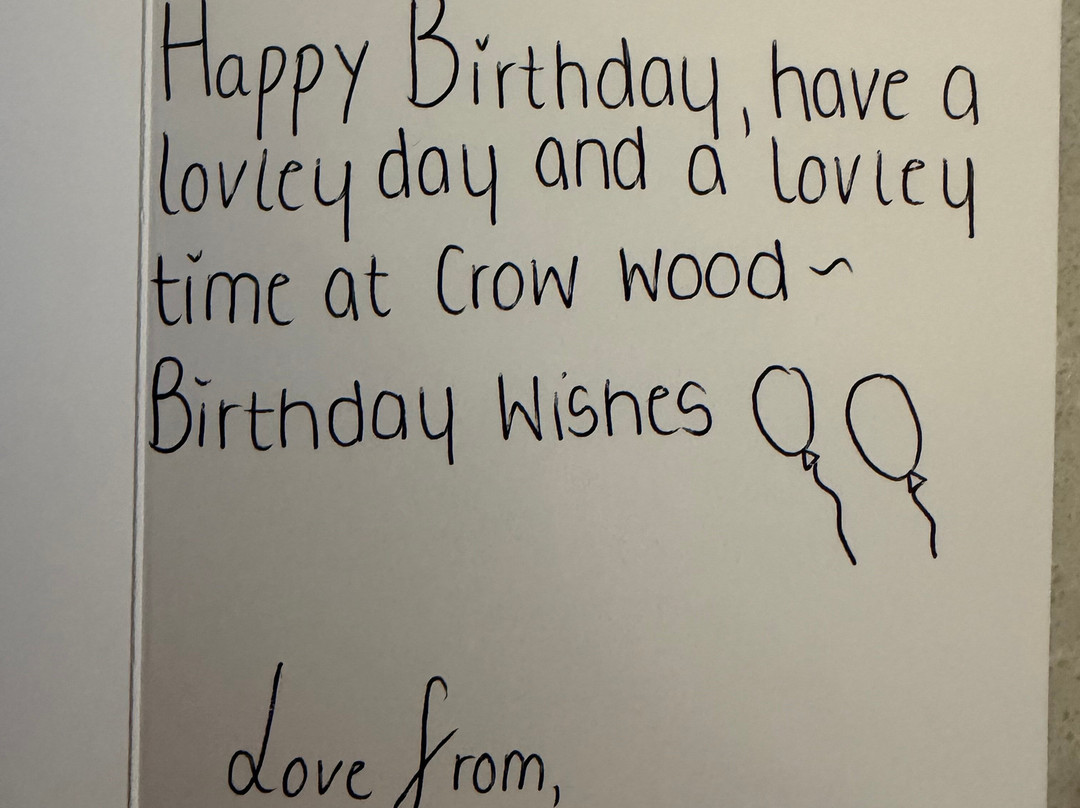 Happy Birthday, have a
lovley day and a lovley
time at Crow Wood ~
Birthday Wishes
Love from,